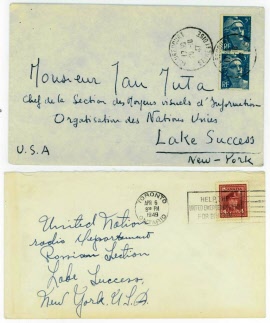 Monsieur Jan Juta
Chef de la Section des Moyens visuels d'Information
Organisation des Nations Unies
Lake Success
U.S.A
New-York
RF
RF
TORONTO
APR 6
PM
1949
ONTARIO
HELP
UNITED EMERGENCY
FOR
United Nations
radio Departement
Russian Section
Lake Success,
New York. USA